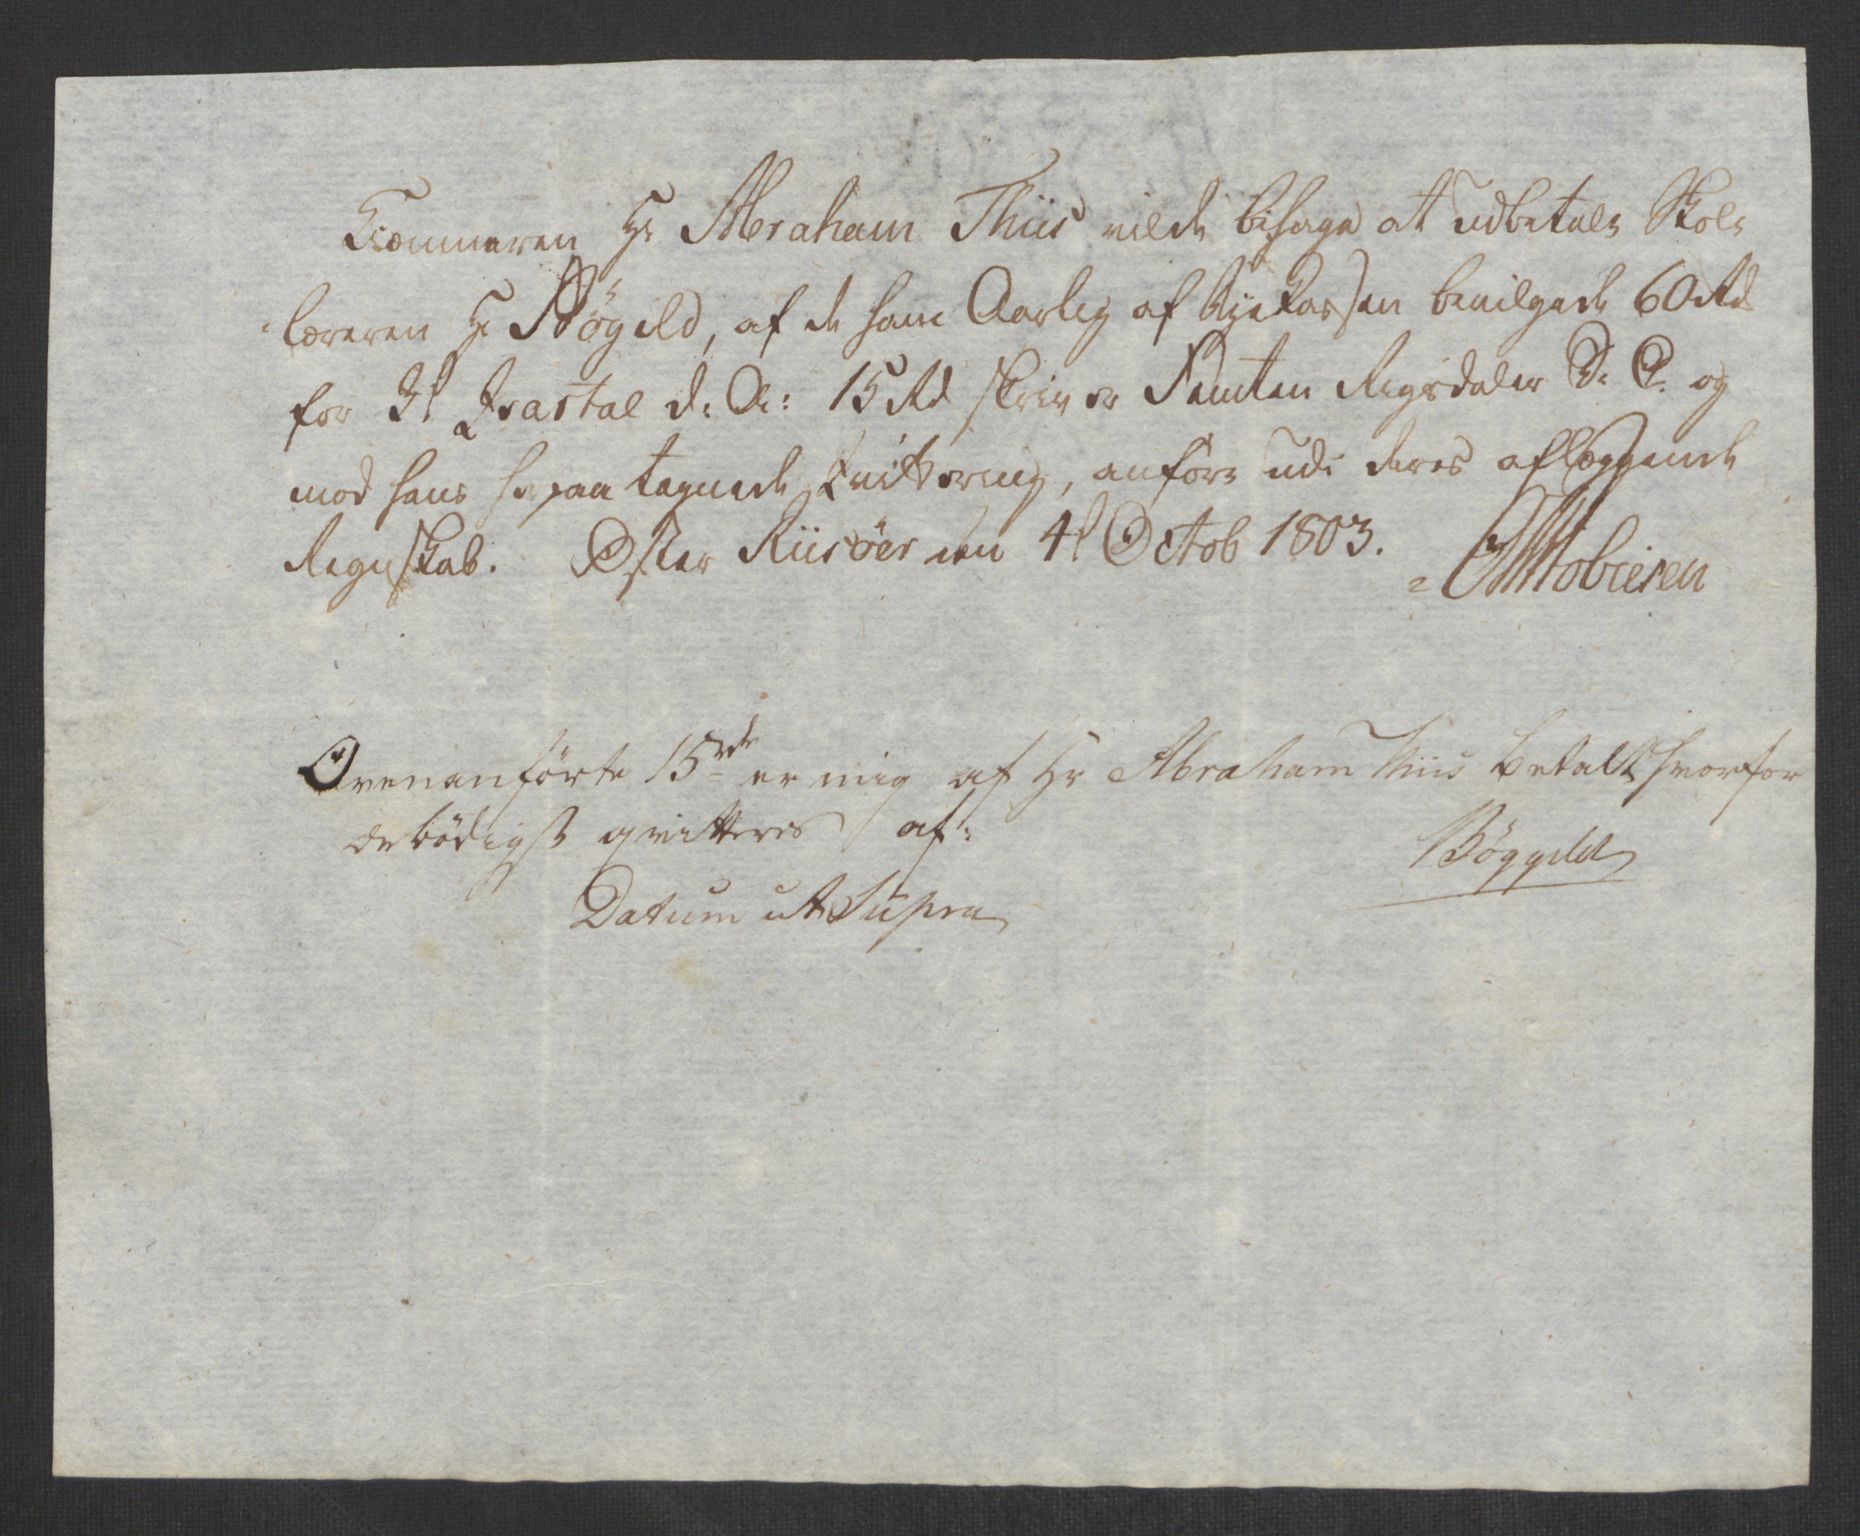 Kiæmneren Hr Abraham Thiis vilde behage at udbetale Skole
læreren Hr Bögild, af de ham Aarlig af Byekassen bevilgede 60 Rd
for 3t Qvartal d: A: 15 Rd skriver Femten Rigsdaler D: C. og
mod hans herpaa tegnede Qvittering, anföre udi deres aflæggende
Regnskab. Öster Riisöer den 4t Octob 1803.
Ovenanförte 15 rdr er mig af Hr Abraham Thiis betalt hvorfor
ærbödigst qvitteres af:
Böggild
Datum ut Supra